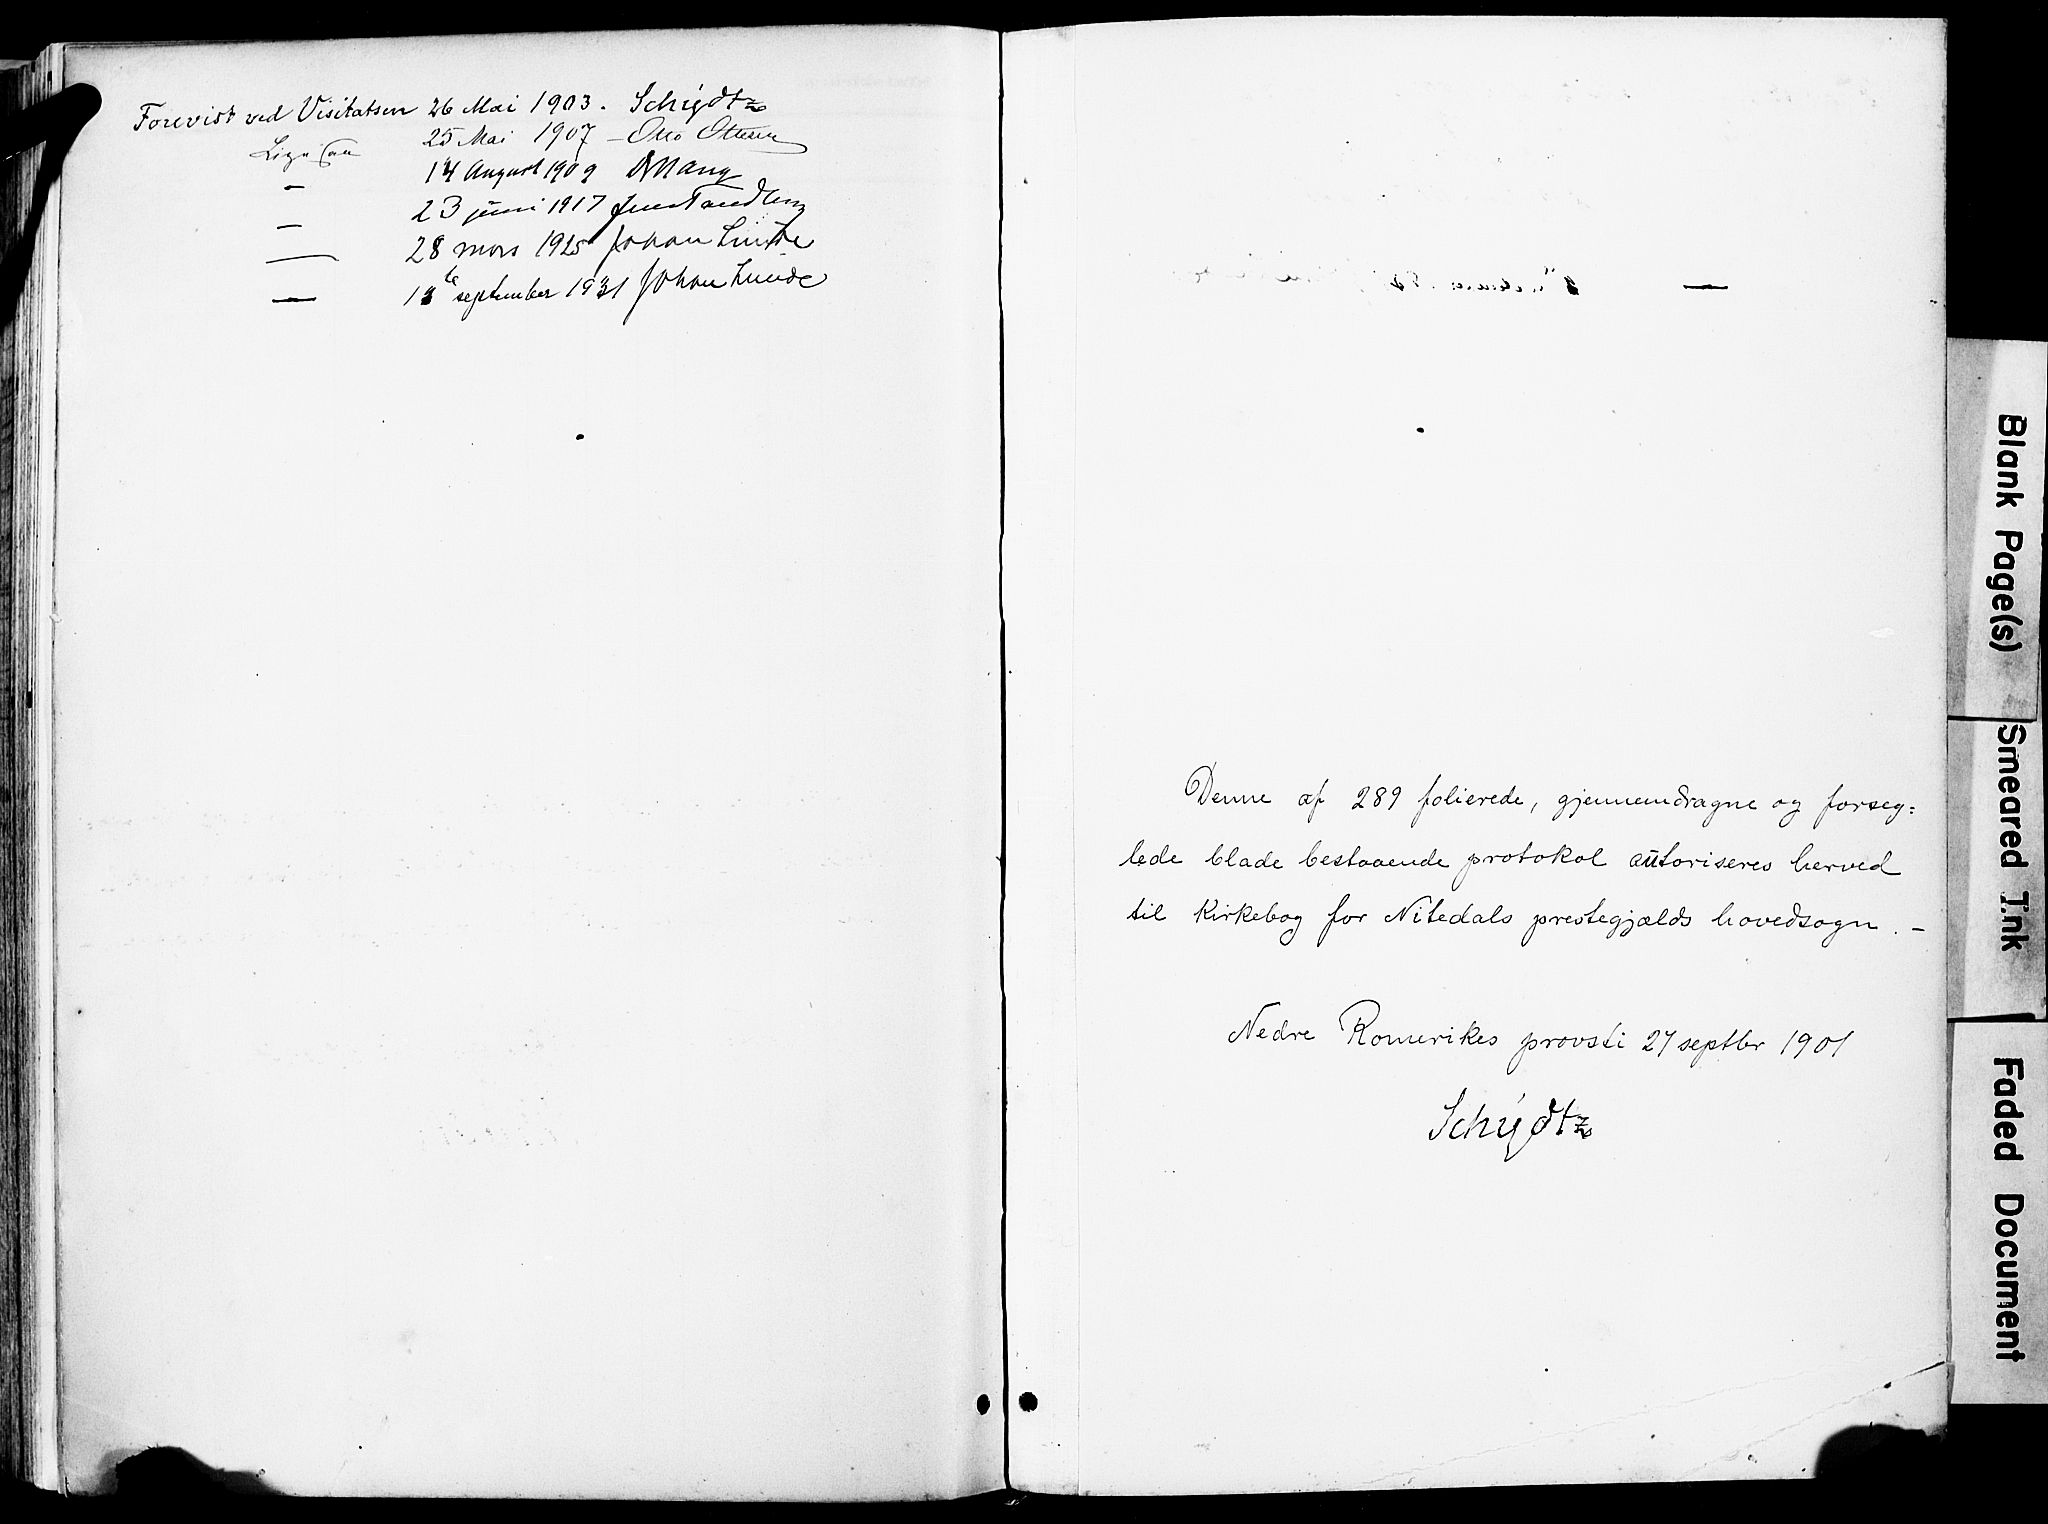 Forevist ved Visitatsen 26 Mai 1903. Schiydtz
Ligesaa 25 Mai 1907 – Otto Ottesen
– 14 August 1909
– 23 juni 1917 Jens Tandberg
— 28 mars 1925 Johan Lunde
— september 1931 Johan Lunde
Denne af 289 folierede, gjennemdragne og forseg=
lede blade bestaaende protokol autoriseres herved
til Kirkebog for Nitedals prestegjælds hovedsogn. –
Nedre Romerikes provsti 27 septbr 1901
Schiydtz
Blank Page(s)
Smeared Ink
Faded Document